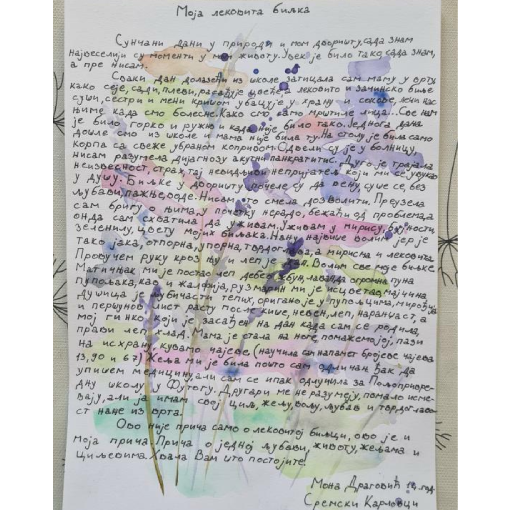 Моја лековита биљка
Сунчани дани у природи и мом дворишту, сада знам
највеселији су моменти у мом животу. Увек је било тако, сада знам,
а пре нисам.
Сваки дан долазећи из школе затицала сам маму у врту
како сеје, сади, плеви, расађује цвећа а лековито и зачинско биље
суши, сестри и мени кришом убацује у храну и сокове, лечи нас
њиме када смо болесне. Како смо само мрштиле лица. Све нам
је било горко и ружно и када није било тако. Једнога дана
дошле смо из школе и мама није била ту. На столу је била само
корпа са свеже убраном копривом. Одвели су је у болницу,
нисам разумела дијагнозу акутни панкреатитис. Дуго је трајала
неизвесност, страх и невидљиви непријатељ који ми се увукао
у душу. Биљке у дворишту почеле су да вену, суше се, без
љубави, пажње, воде. Нисам то смела дозволити. Преузела
сам бригу о њима, у почетку нерадо, бежећи од проблема, а
онда сам схватила да уживам, уживам у мирису, бујности
зеленилу, цвету мојих биљака. Нану највише волим јер је
тако јака, отпорна, упорна, тврдоглава, а мирисна и лековита.
Провучем руку кроз њу и леп је дан. Волим све моје биљке
Матичњак ми је постао леп дебео жбун, лаванда огромна пуна
пупољака, као и жалфија, рузмарин ми је још ветар, мајчина
душица је љубичасти тепих, оригано је у пупољцима, мирођија
и першунов лист расту после кише, невен, леп, наранџаст, а
мој гинко, који је засађен на дан када сам се родила,
прави леп хлад. Мама је стала на ноге, помаже мој, пази
на исхрану, кувамо чајеве (научила сам напамет бројеве чајева
13, 90 и 67) Жеља ми је била пошто сам одличан ђак да
упишем медицину, али сам се ипак одлучила за Пољопривре-
дну школу у Футогу. Другари ме не разумеју, помало исме-
вају, али ја имам свој циљ, жељу, вољу, љубав и тврдоглаво-
ст нане из врта.
Ово није прича само о лековитој биљци, ово је и
моја прича. Прича о једној љубави, животу, жељама и
циљевима. Хвала Вам што постојите!
Мона Драговић год.
Сремски Карловци